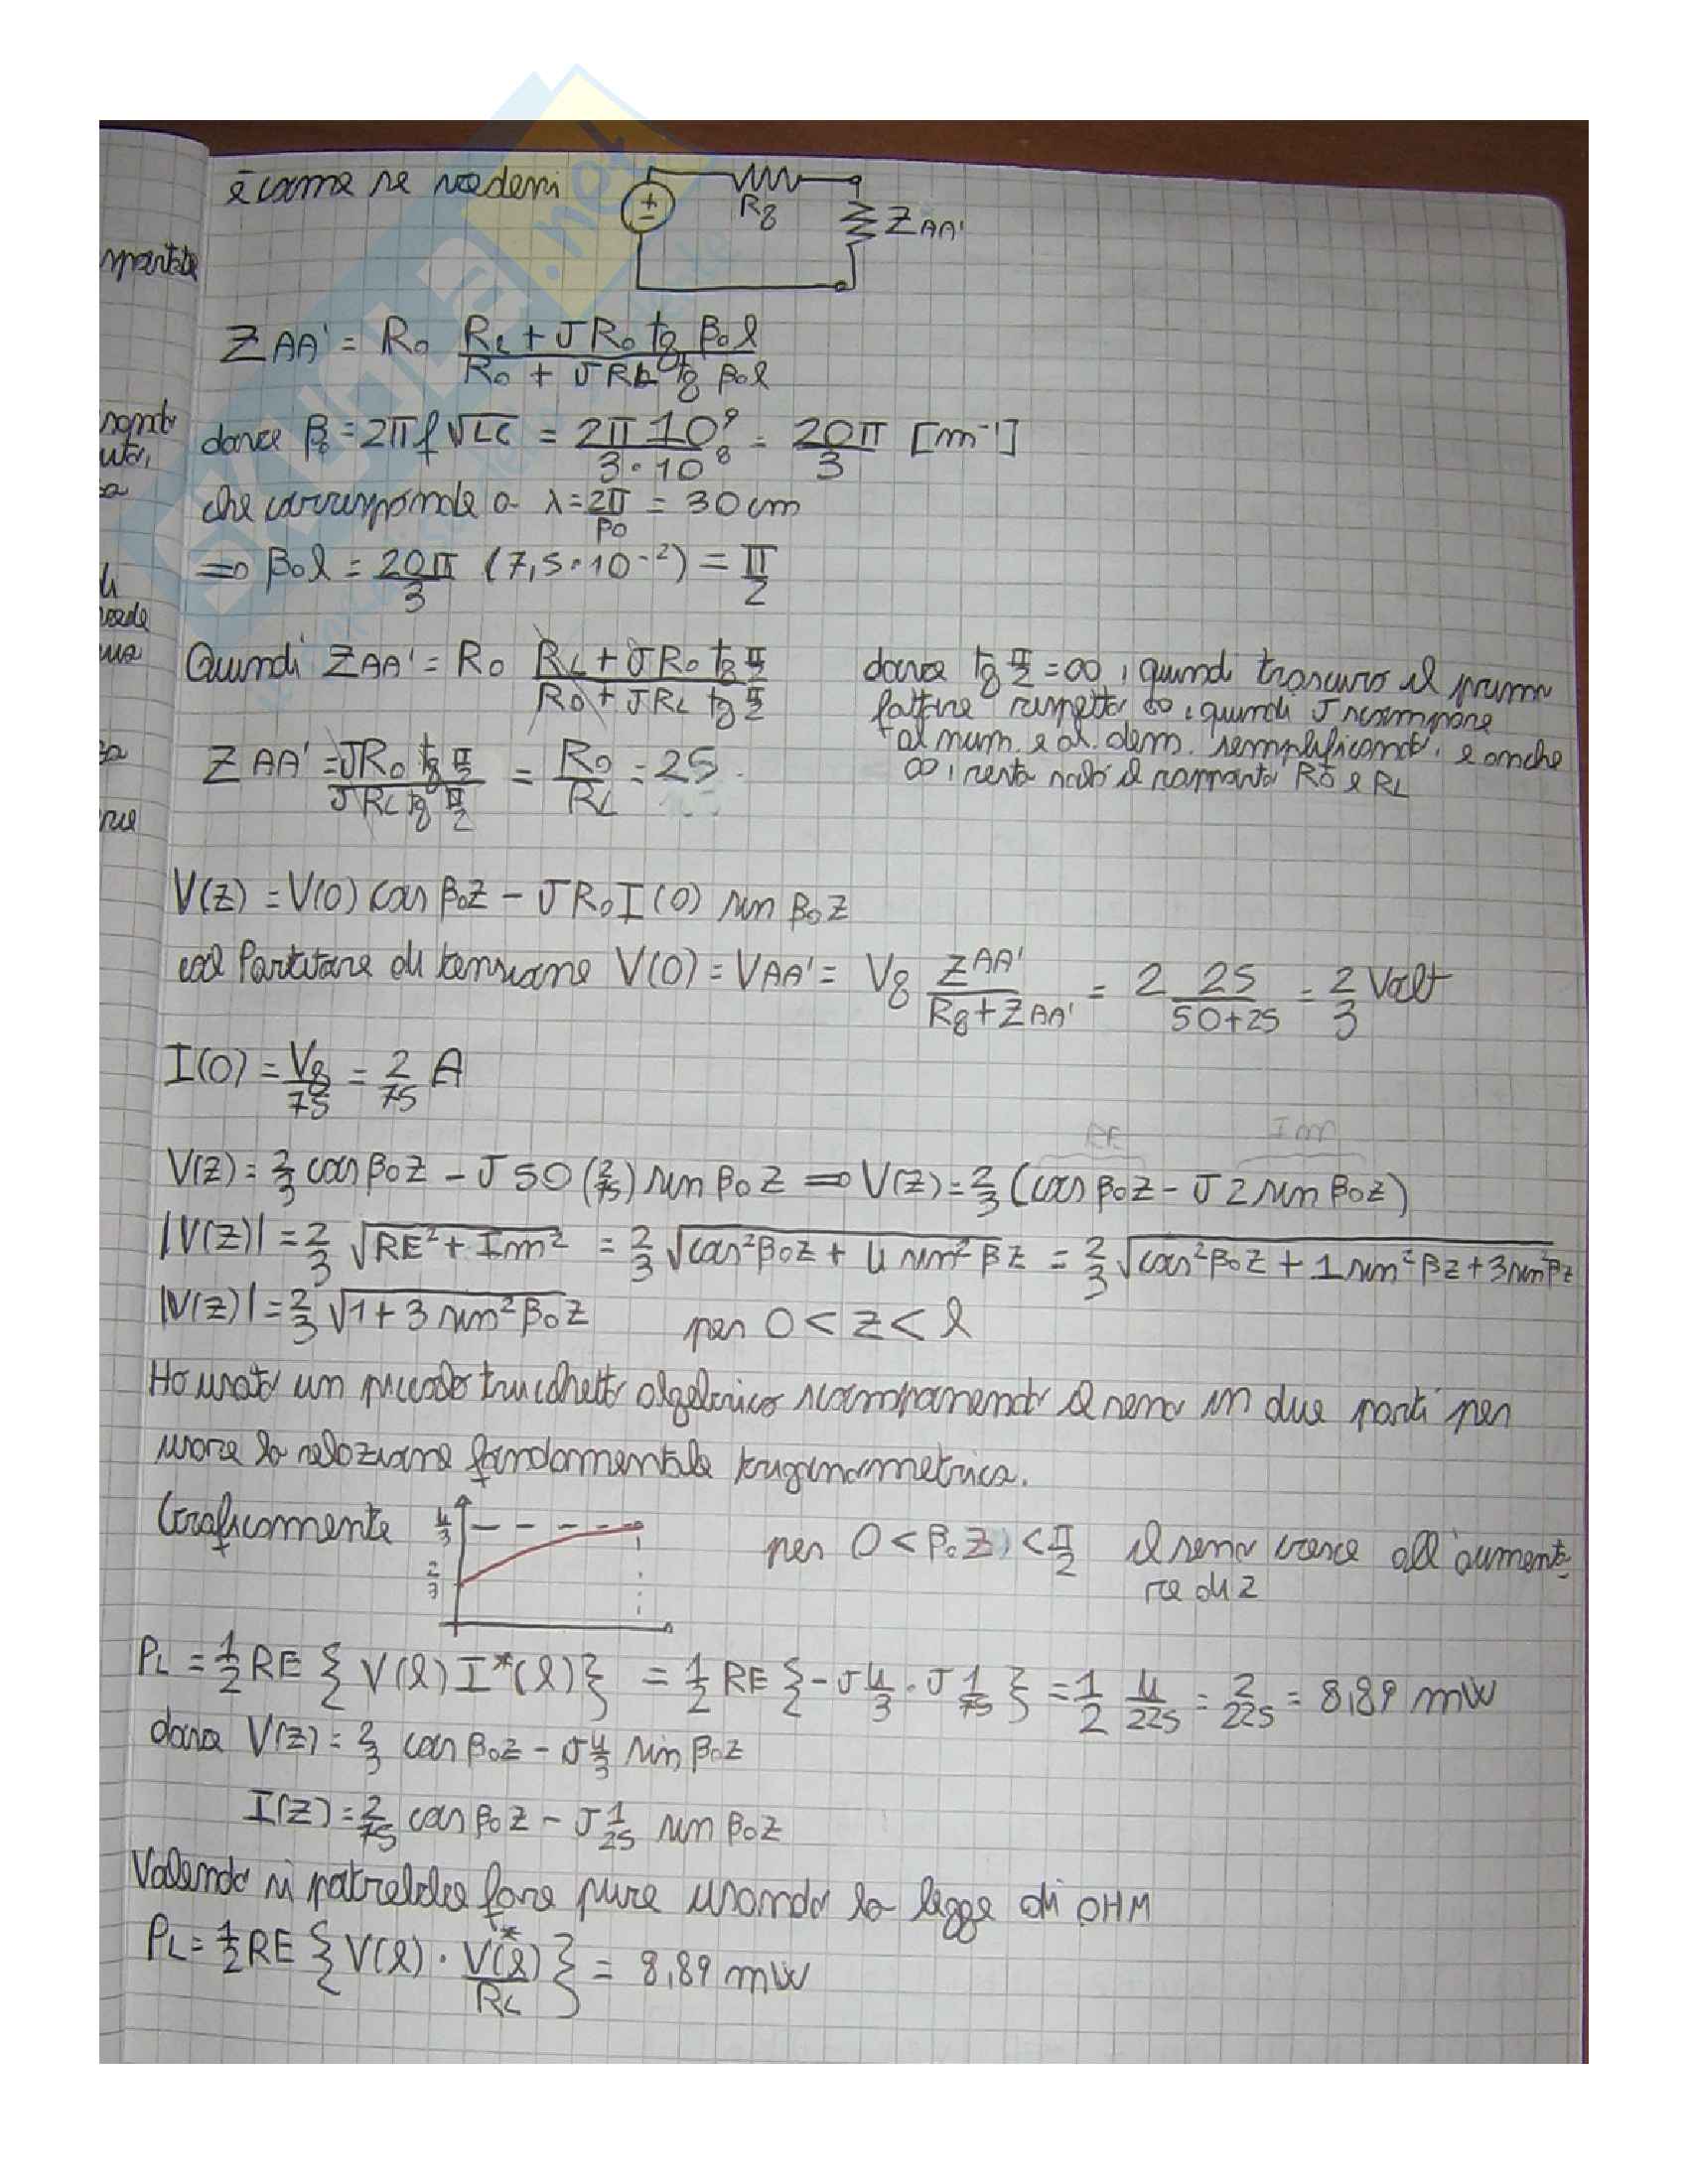 è come se vedessi
Rg
ZAA'
ZAA' = R0 (RL + J R0 tg β0l) / (R0 + J RL tg β0l)
dove β0 = 2π f √LC = 2π 10^9 / 3·10^8 = 20π/3 [m^-1]
che corrisponde a λ = 2π/β0 = 30 cm
=> β0l = 20π/3 (7,5·10^-2) = π/2
Quindi ZAA' = R0 (RL + J R0 tg π/2) / (R0 + J RL tg π/2)
dove tg π/2 = ∞, quindi trascuro il primo
fattore rispetto ∞, quindi J scompare
al num. e al dem. semplificando. e anche
∞, resta solo il rapporto R0 e RL
ZAA' = J R0 tg π/2 / J RL tg π/2 = R0/RL = 25
V(z) = V(0) cos β0z - J R0 I(0) sin β0z
col Partitore di tensione V(0) = VAA' = Vg ZAA' / (Rg + ZAA') = 2 25/(50+25) = 2/3 Volt
I(0) = Vg/75 = 2/75 A
RE Im
V(z) = 2/3 cos β0z - J 50 (2/75) sin β0z => V(z) = 2/3 (cos β0z - J 2 sin β0z)
|V(z)| = 2/3 √(RE² + Im²) = 2/3 √(cos² β0z + 4 sin² βz) = 2/3 √(cos² β0z + 1 sin² βz + 3 sin² βz)
|V(z)| = 2/3 √(1 + 3 sin² β0z) per 0 < z < l
Ho usato un piccolo trucchetto algebrico scomponendo il seno in due parti per
usare la relazione fondamentale trigonometrica.
Graficamente
4/3
2/3
per 0 < β0z < π/2 il seno cresce all'aumenta-
re di z
PL = 1/2 RE { V(l) I*(l) } = 1/2 RE { -J 4/3 · J 1/75 } = 1/2 4/225 = 2/225 = 8,89 mW
dove V(z) = 2/3 cos β0z - J 4/3 sin β0z
I(z) = 2/75 cos β0z - J 1/25 sin β0z
Volendo si potrebbe fare pure usando la legge di OHM
PL = 1/2 RE { V(l) · V(l)*/RL } = 8,89 mW